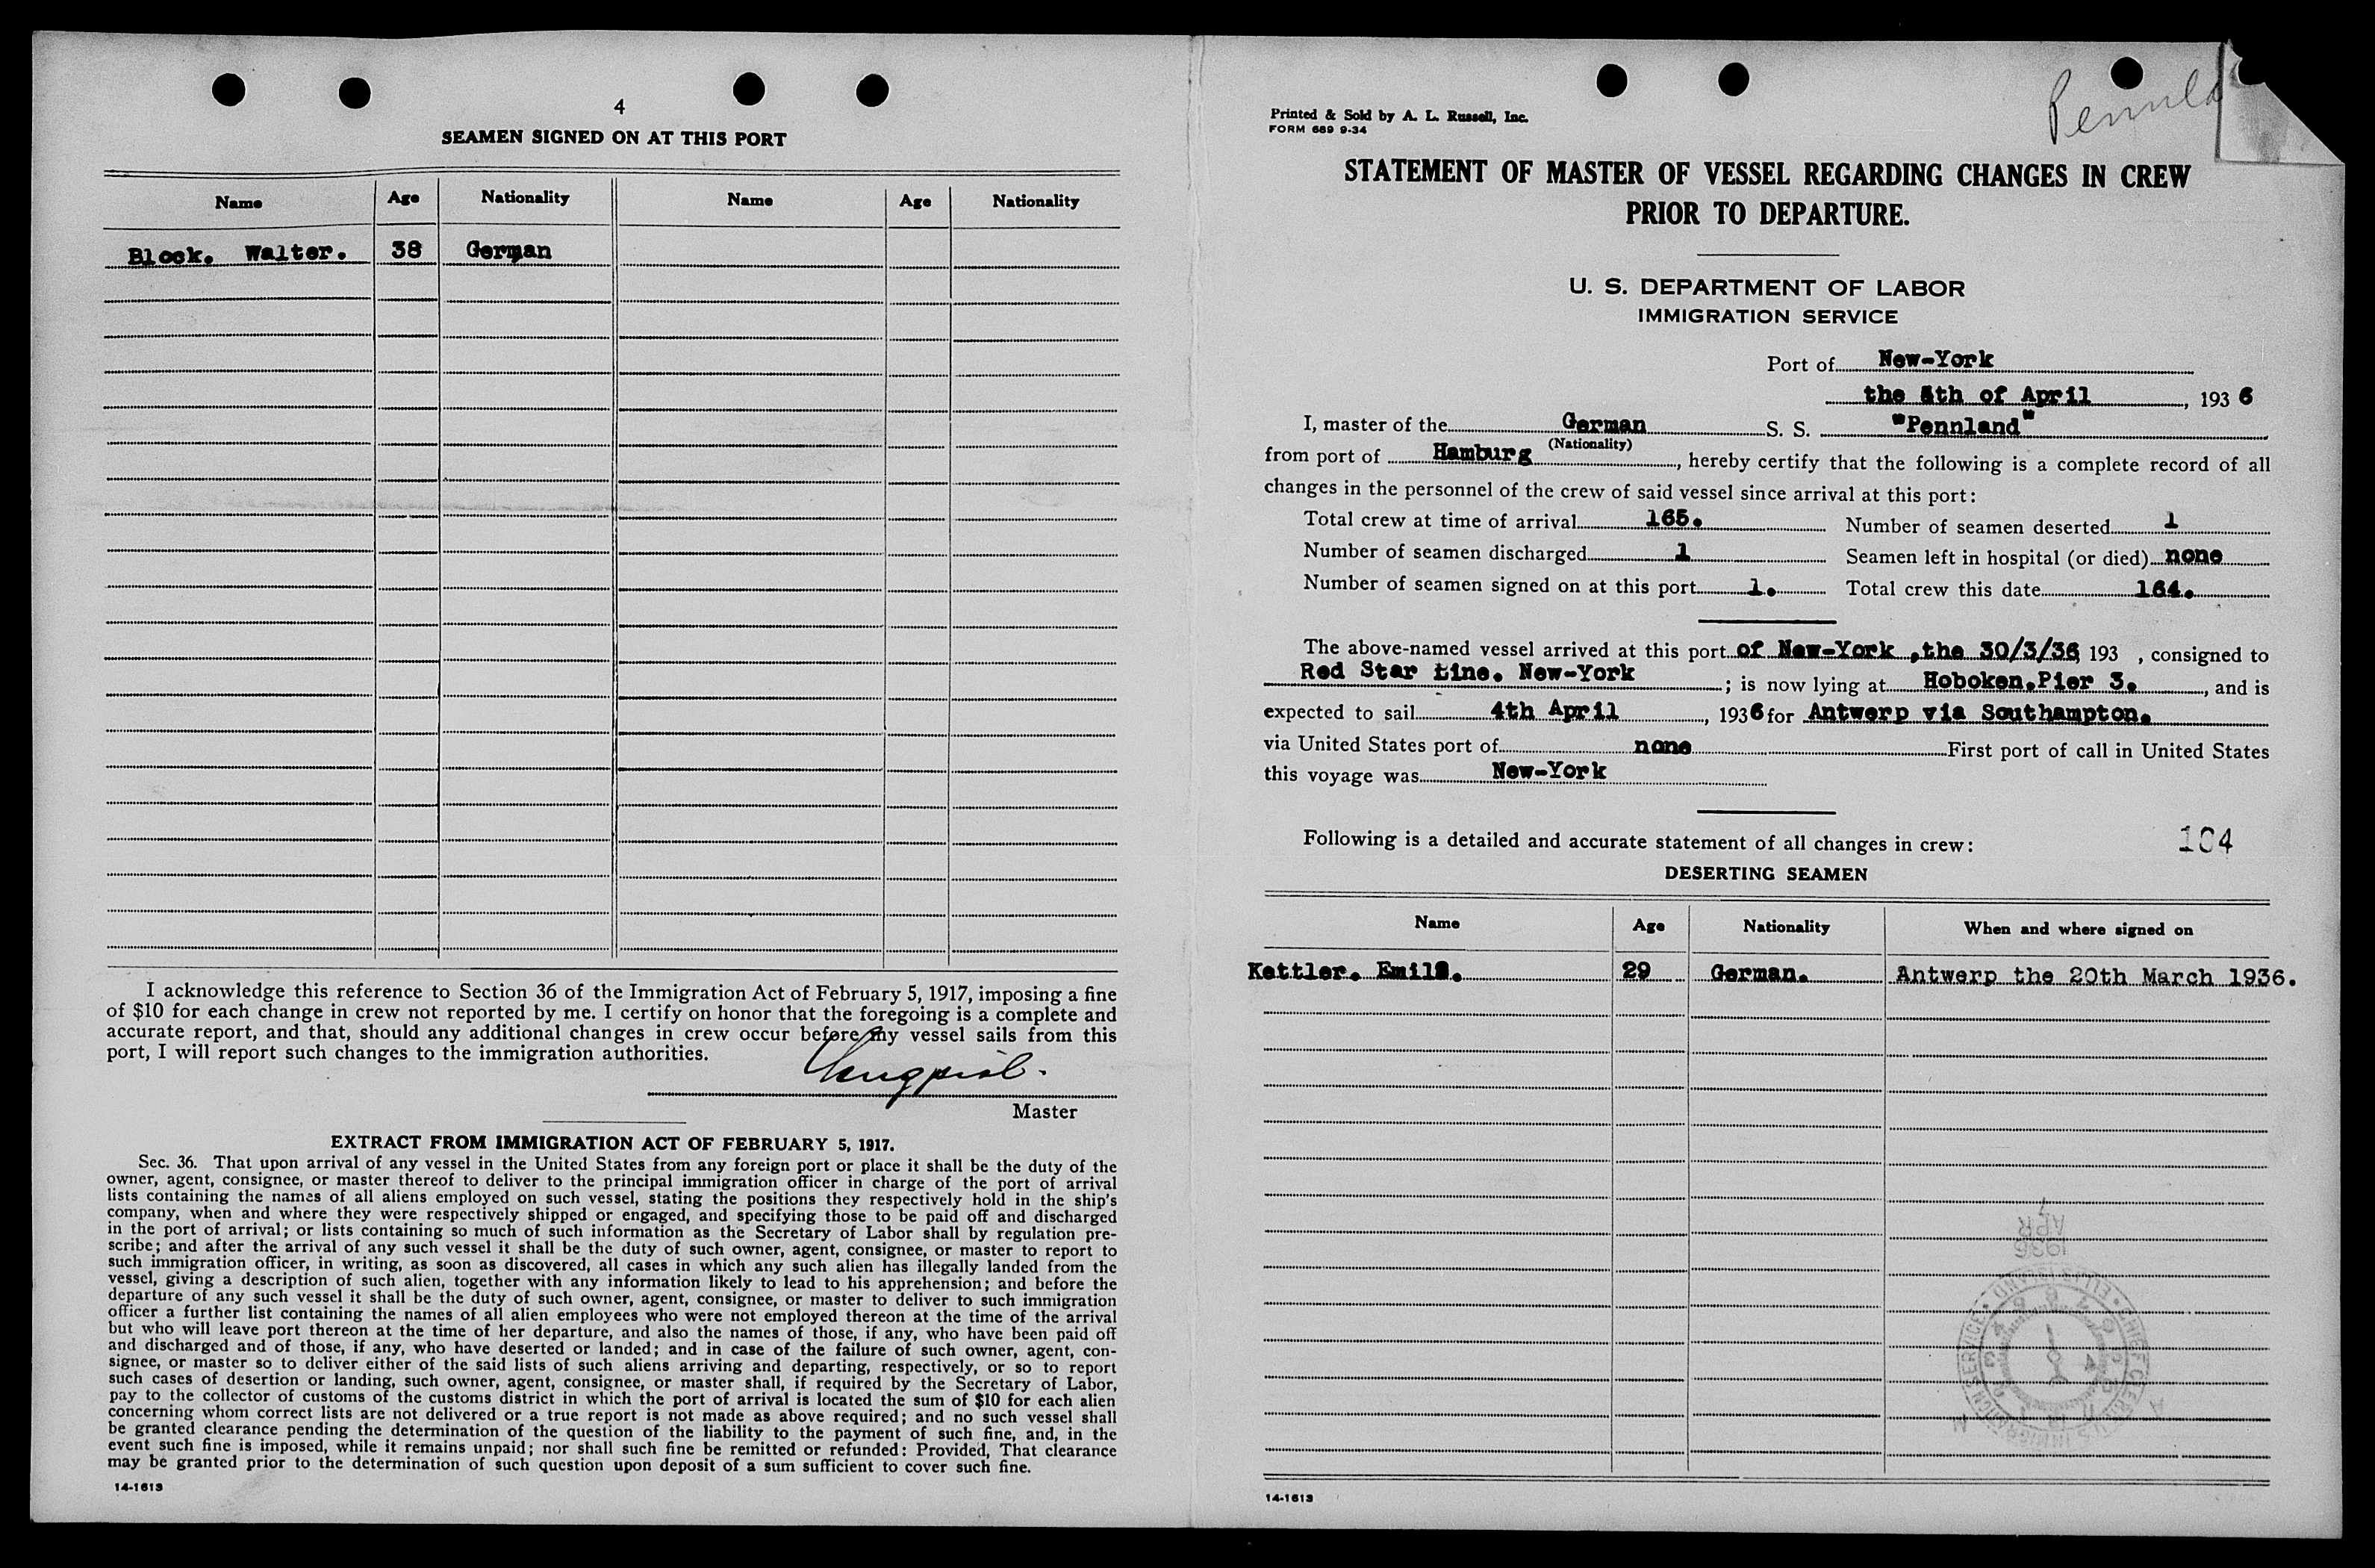 4
SEAMEN SIGNED ON AT THIS PORT
Name Age Nationality Name Age Nationality
Block. Walter. 38 German
I acknowledge this reference to Section 36 of the Immigration Act of February 5, 1917, imposing a fine
of $10 for each change in crew not reported by me. I certify on honor that the foregoing is a complete and
accurate report, and that, should any additional changes in crew occur before my vessel sails from this
port, I will report such changes to the immigration authorities.
Master
EXTRACT FROM IMMIGRATION ACT OF FEBRUARY 5, 1917.
Sec. 36. That upon arrival of any vessel in the United States from any foreign port or place it shall be the duty of the
owner, agent, consignee, or master thereof to deliver to the principal immigration officer in charge of the port of arrival
lists containing the names of all aliens employed on such vessel, stating the positions they respectively hold in the ship's
company, when and where they were respectively shipped or engaged, and specifying those to be paid off and discharged
in the port of arrival; or lists containing so much of such information as the Secretary of Labor shall by regulation pre-
scribe; and after the arrival of any such vessel it shall be the duty of such owner, agent, consignee, or master to report to
such immigration officer, in writing, as soon as discovered, all cases in which any such alien has illegally landed from the
vessel, giving a description of such alien, together with any information likely to lead to his apprehension; and before the
departure of any such vessel it shall be the duty of such owner, agent, consignee, or master to deliver to such immigration
officer a further list containing the names of all alien employees who were not employed thereon at the time of the arrival
but who will leave port thereon at the time of her departure, and also the names of those, if any, who have been paid off
and discharged and of those, if any, who have deserted or landed; and in case of the failure of such owner, agent, con-
signee, or master so to deliver either of the said lists of such aliens arriving and departing, respectively, or so to report
such cases of desertion or landing, such owner, agent, consignee, or master shall, if required by the Secretary of Labor,
pay to the collector of customs of the customs district in which the port of arrival is located the sum of $10 for each alien
concerning whom correct lists are not delivered or a true report is not made as above required; and no such vessel shall
be granted clearance pending the determination of the question of the liability to the payment of such fine, and, in the
event such fine is imposed, while it remains unpaid; nor shall such fine be remitted or refunded: Provided, That clearance
may be granted prior to the determination of such question upon deposit of a sum sufficient to cover such fine.
14-1613
Printed & Sold by A. L. Russell, Inc.
FORM 689 9-34
STATEMENT OF MASTER OF VESSEL REGARDING CHANGES IN CREW
PRIOR TO DEPARTURE.
U. S. DEPARTMENT OF LABOR
IMMIGRATION SERVICE
Port of New-York
the 4th of April, 1936
I, master of the German S. S. "Pennland"
(Nationality)
from port of Hamburg, hereby certify that the following is a complete record of all
changes in the personnel of the crew of said vessel since arrival at this port:
Total crew at time of arrival 165. Number of seamen deserted 1
Number of seamen discharged 1 Seamen left in hospital (or died) none
Number of seamen signed on at this port 1. Total crew this date 164.
The above-named vessel arrived at this port of New-York, the 30/3/36 193 , consigned to
Red Star Line. New-York; is now lying at Hoboken, Pier 3., and is
expected to sail 4th April, 1936 for Antwerp via Southampton.
via United States port of none First port of call in United States
this voyage was New-York
Following is a detailed and accurate statement of all changes in crew: 104
DESERTING SEAMEN
Name Age Nationality When and where signed on
Kettler. Emil. 29 German. Antwerp the 20th March 1936.
APR
1936
14-1613